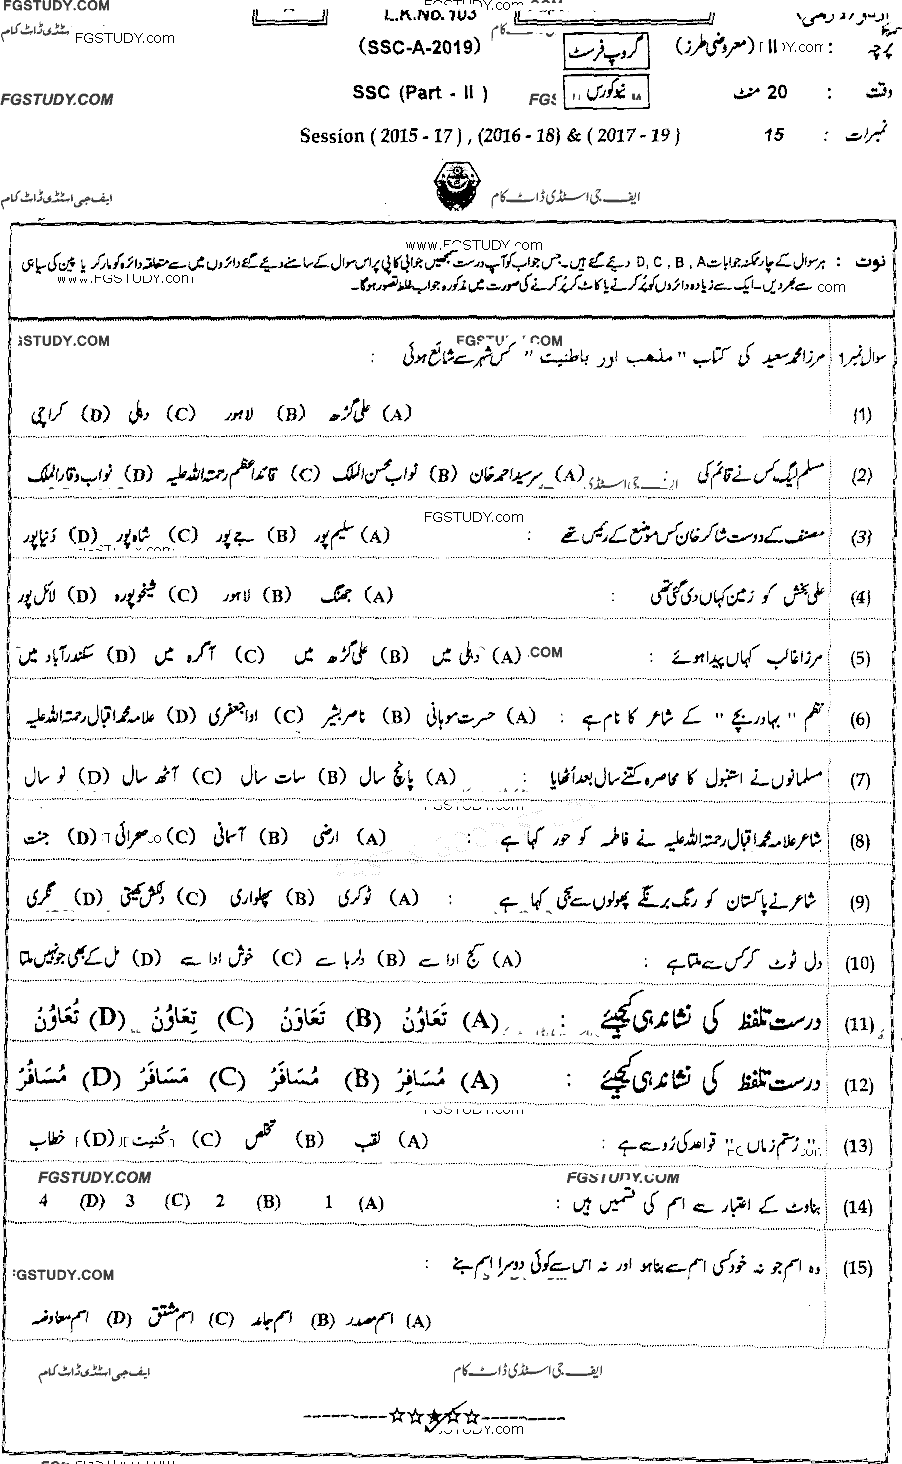 FGSTUDY.COM FGSTUDY.com
L.K.NO. 103
ایف جی اسٹڈی ڈاٹ کام
پرچہ : II (معروضی طرز) گروپ فرسٹ (SSC-A-2019)
وقت : 20 منٹ نیو کورس SSC (Part - II) FGSTUDY.COM
نمبرات : 15 Session (2015 - 17), (2016 - 18) & (2017 - 19)
ایف جی اسٹڈی ڈاٹ کام ایف جی اسٹڈی ڈاٹ کام
www.FGSTUDY.com
نوٹ : ہر سوال کے چار ممکنہ جوابات D, C, B, A دیئے گئے ہیں۔ جس جواب کو آپ درست سمجھیں جوابی کاپی پر اس سوال کے سامنے دیئے گئے دائروں میں سے متعلقہ دائرہ کو مارکر یا پین کی سیاہی
سے بھر دیں۔ ایک سے زیادہ دائروں کو پُر کرنے یا کاٹ کر پُر کرنے کی صورت میں مذکورہ جواب غلط تصور ہوگا۔
سوال نمبر 1 مرزا محمد سعید کی کتاب " مذہب اور باطنیت " کس شہر سے شائع ہوئی :
(1) (A) علی گڑھ (B) لاہور (C) دہلی (D) کراچی
(2) مسلم لیگ کس نے قائم کی (A) سرسید احمد خان (B) نواب محسن الملک (C) قائد اعظم رحمۃ اللہ علیہ (D) نواب وقار الملک
FGSTUDY.com
(3) مصنف کے دوست شاکر خان کس موضع کے رئیس تھے : (A) سلیم پور (B) جے پور (C) شاہ پور (D) دُنیا پور
(4) علی بخش کو زمین کہاں دی گئی تھی : (A) جھنگ (B) لاہور (C) شیخوپورہ (D) لائل پور
(5) مرزا غالب کہاں پیدا ہوئے : (A) دہلی میں (B) علی گڑھ میں (C) آگرہ میں (D) سکندر آباد میں
(6) نظم " بہادر بچے " کے شاعر کا نام ہے : (A) حسرت موہانی (B) ناصر بشیر (C) ادا جعفری (D) علامہ محمد اقبال رحمۃ اللہ علیہ
(7) مسلمانوں نے استنبول کا محاصرہ کتنے سالی بعد اُٹھایا : (A) پانچ سال (B) سات سال (C) آٹھ سال (D) نو سال
(8) شاعر علامہ محمد اقبال رحمۃ اللہ علیہ نے فاطمہ کو حور کہا ہے : (A) ارضی (B) آسمانی (C) صحرائی (D) جنت
(9) شاعر نے پاکستان کو رنگ برنگے پھولوں سے سجی کہا ہے : (A) ٹوکری (B) پھلواری (C) دلکش کھیتی (D) نگری
(10) دل ٹوٹ کر کس سے ملتا ہے : (A) کج ادا سے (B) دلربا سے (C) خوش ادا سے (D) مل کے بھی جو نہیں ملتا
(11) درست تلفظ کی نشاندہی کیجیئے : (A) تَعَاوُنْ (B) تَعَاوَنْ (C) تِعَاوُنْ (D) تُعَاوُنْ
(12) درست تلفظ کی نشاندہی کیجیئے : (A) مُسَافِرْ (B) مُسَافَرْ (C) مَسَافَرْ (D) مُسَافُرْ
(13) "رُستم زماں" قواعد کی رُو سے ہے : (A) لقب (B) تخلص (C) کُنیت (D) خطاب
FGSTUDY.COM FGSTUDY.COM
(14) بناوٹ کے اعتبار سے اسم کی قسمیں ہیں : (A) 1 (B) 2 (C) 3 (D) 4
(15) وہ اسم جو نہ خود کسی اسم سے بنا ہو اور نہ اس سے کوئی دوسرا اسم بنے :
(A) اسم مصدر (B) اسم جامد (C) اسم مشتق (D) اسم معاوضہ
ایف جی اسٹڈی ڈاٹ کام ایف جی اسٹڈی ڈاٹ کام
----------☆☆★☆☆----------